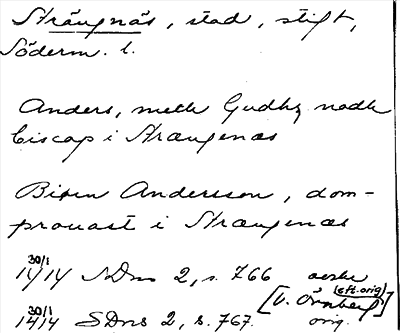 Strängnäs, stad, stift,
Söderm. l.
Anders, meth Gudhz nadh
biscop i Strængenæs
Biørn Andersson, dom-
prouast i Strængenæs
30/1
1414 SDns 2, s. 766
(eft. orig)
[O. Örnberg]
30/1
1414 SDns 2, s. 767. orig.